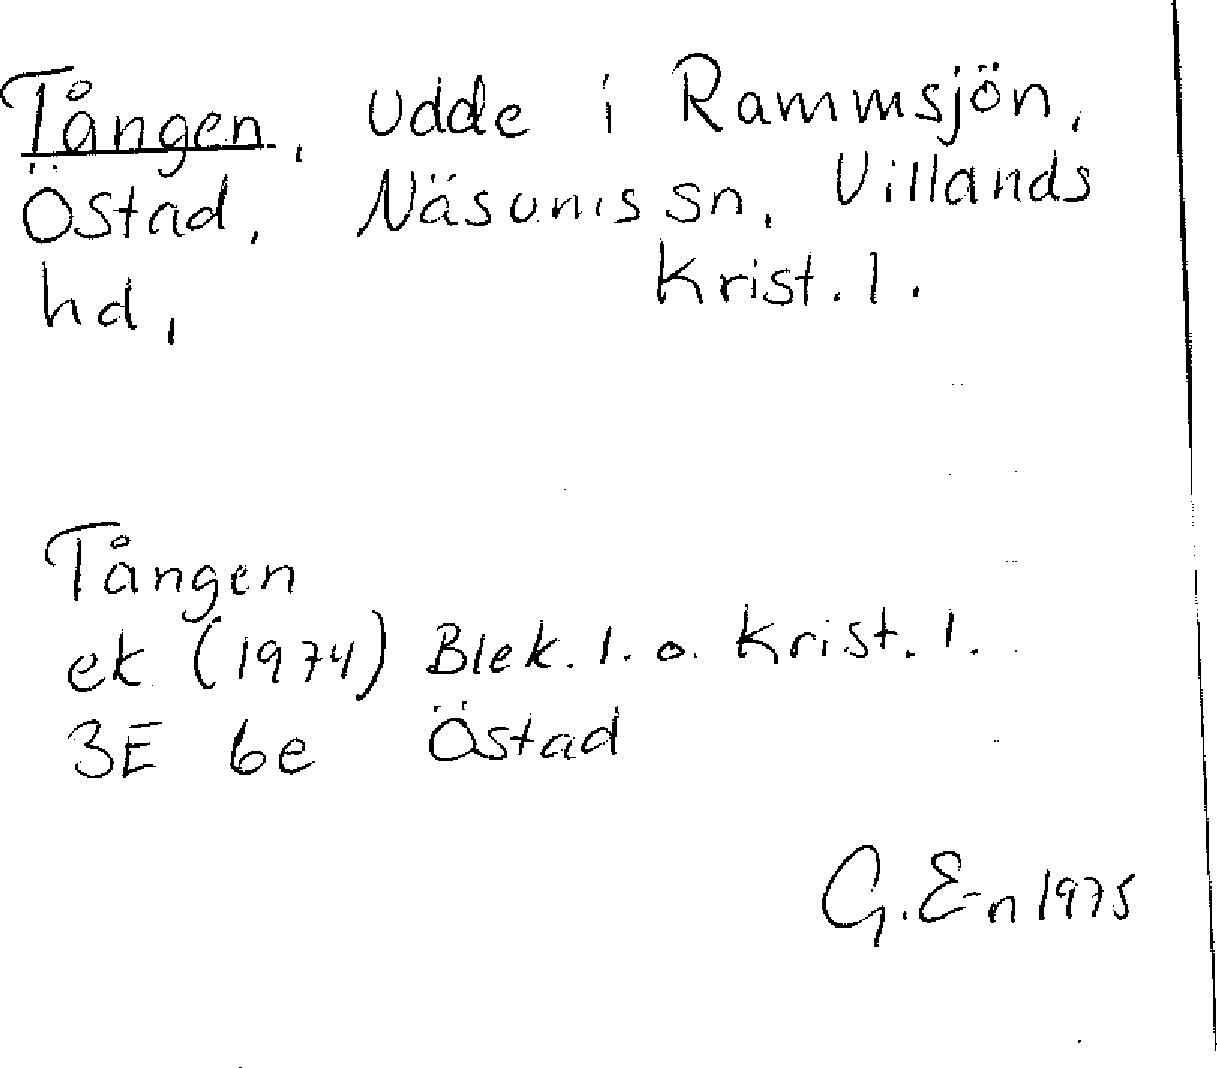 Tången, udde i Rammsjön,
Östad, Näsums sn, Villands
hd, Krist. l.
Tången
ek (1974) Blek. l. o. Krist. l.
3E 6e Östad
G. E-n 1975